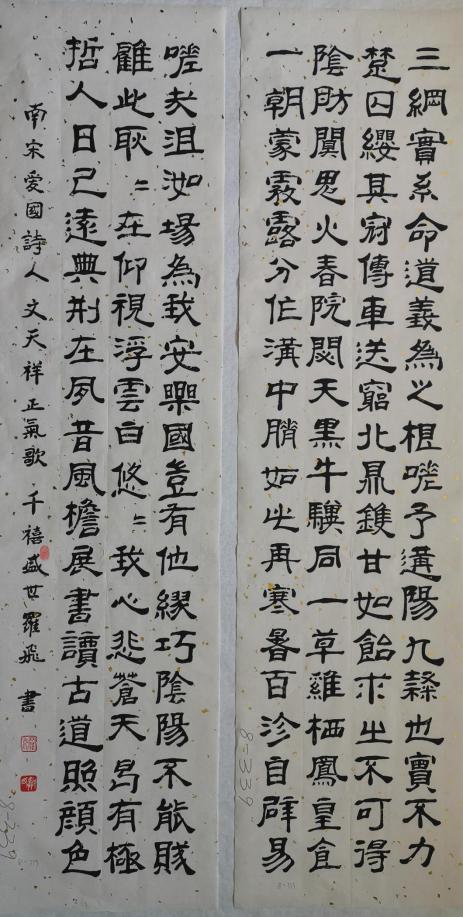 三綱實系命道義為之根嗟予遘陽九隸也實不力
楚囚纓其冠傳車送窮北鼎鑊甘如飴求之不可得
陰房闃鬼火春院閟天黑牛驥同一草雞栖鳳皇食
一朝蒙霧露分作溝中瘠如此再寒暑百沴自辟易
嗟哉沮洳場為我安樂國豈有他繆巧陰陽不能賊
顧此耿〻在仰視浮雲白悠〻我心悲蒼天曷有極
哲人日已遠典刑在夙昔風檐展書讀古道照顏色
南宋愛國詩人文天祥正氣歌千禧盛世羅飛書
8-339
8-339